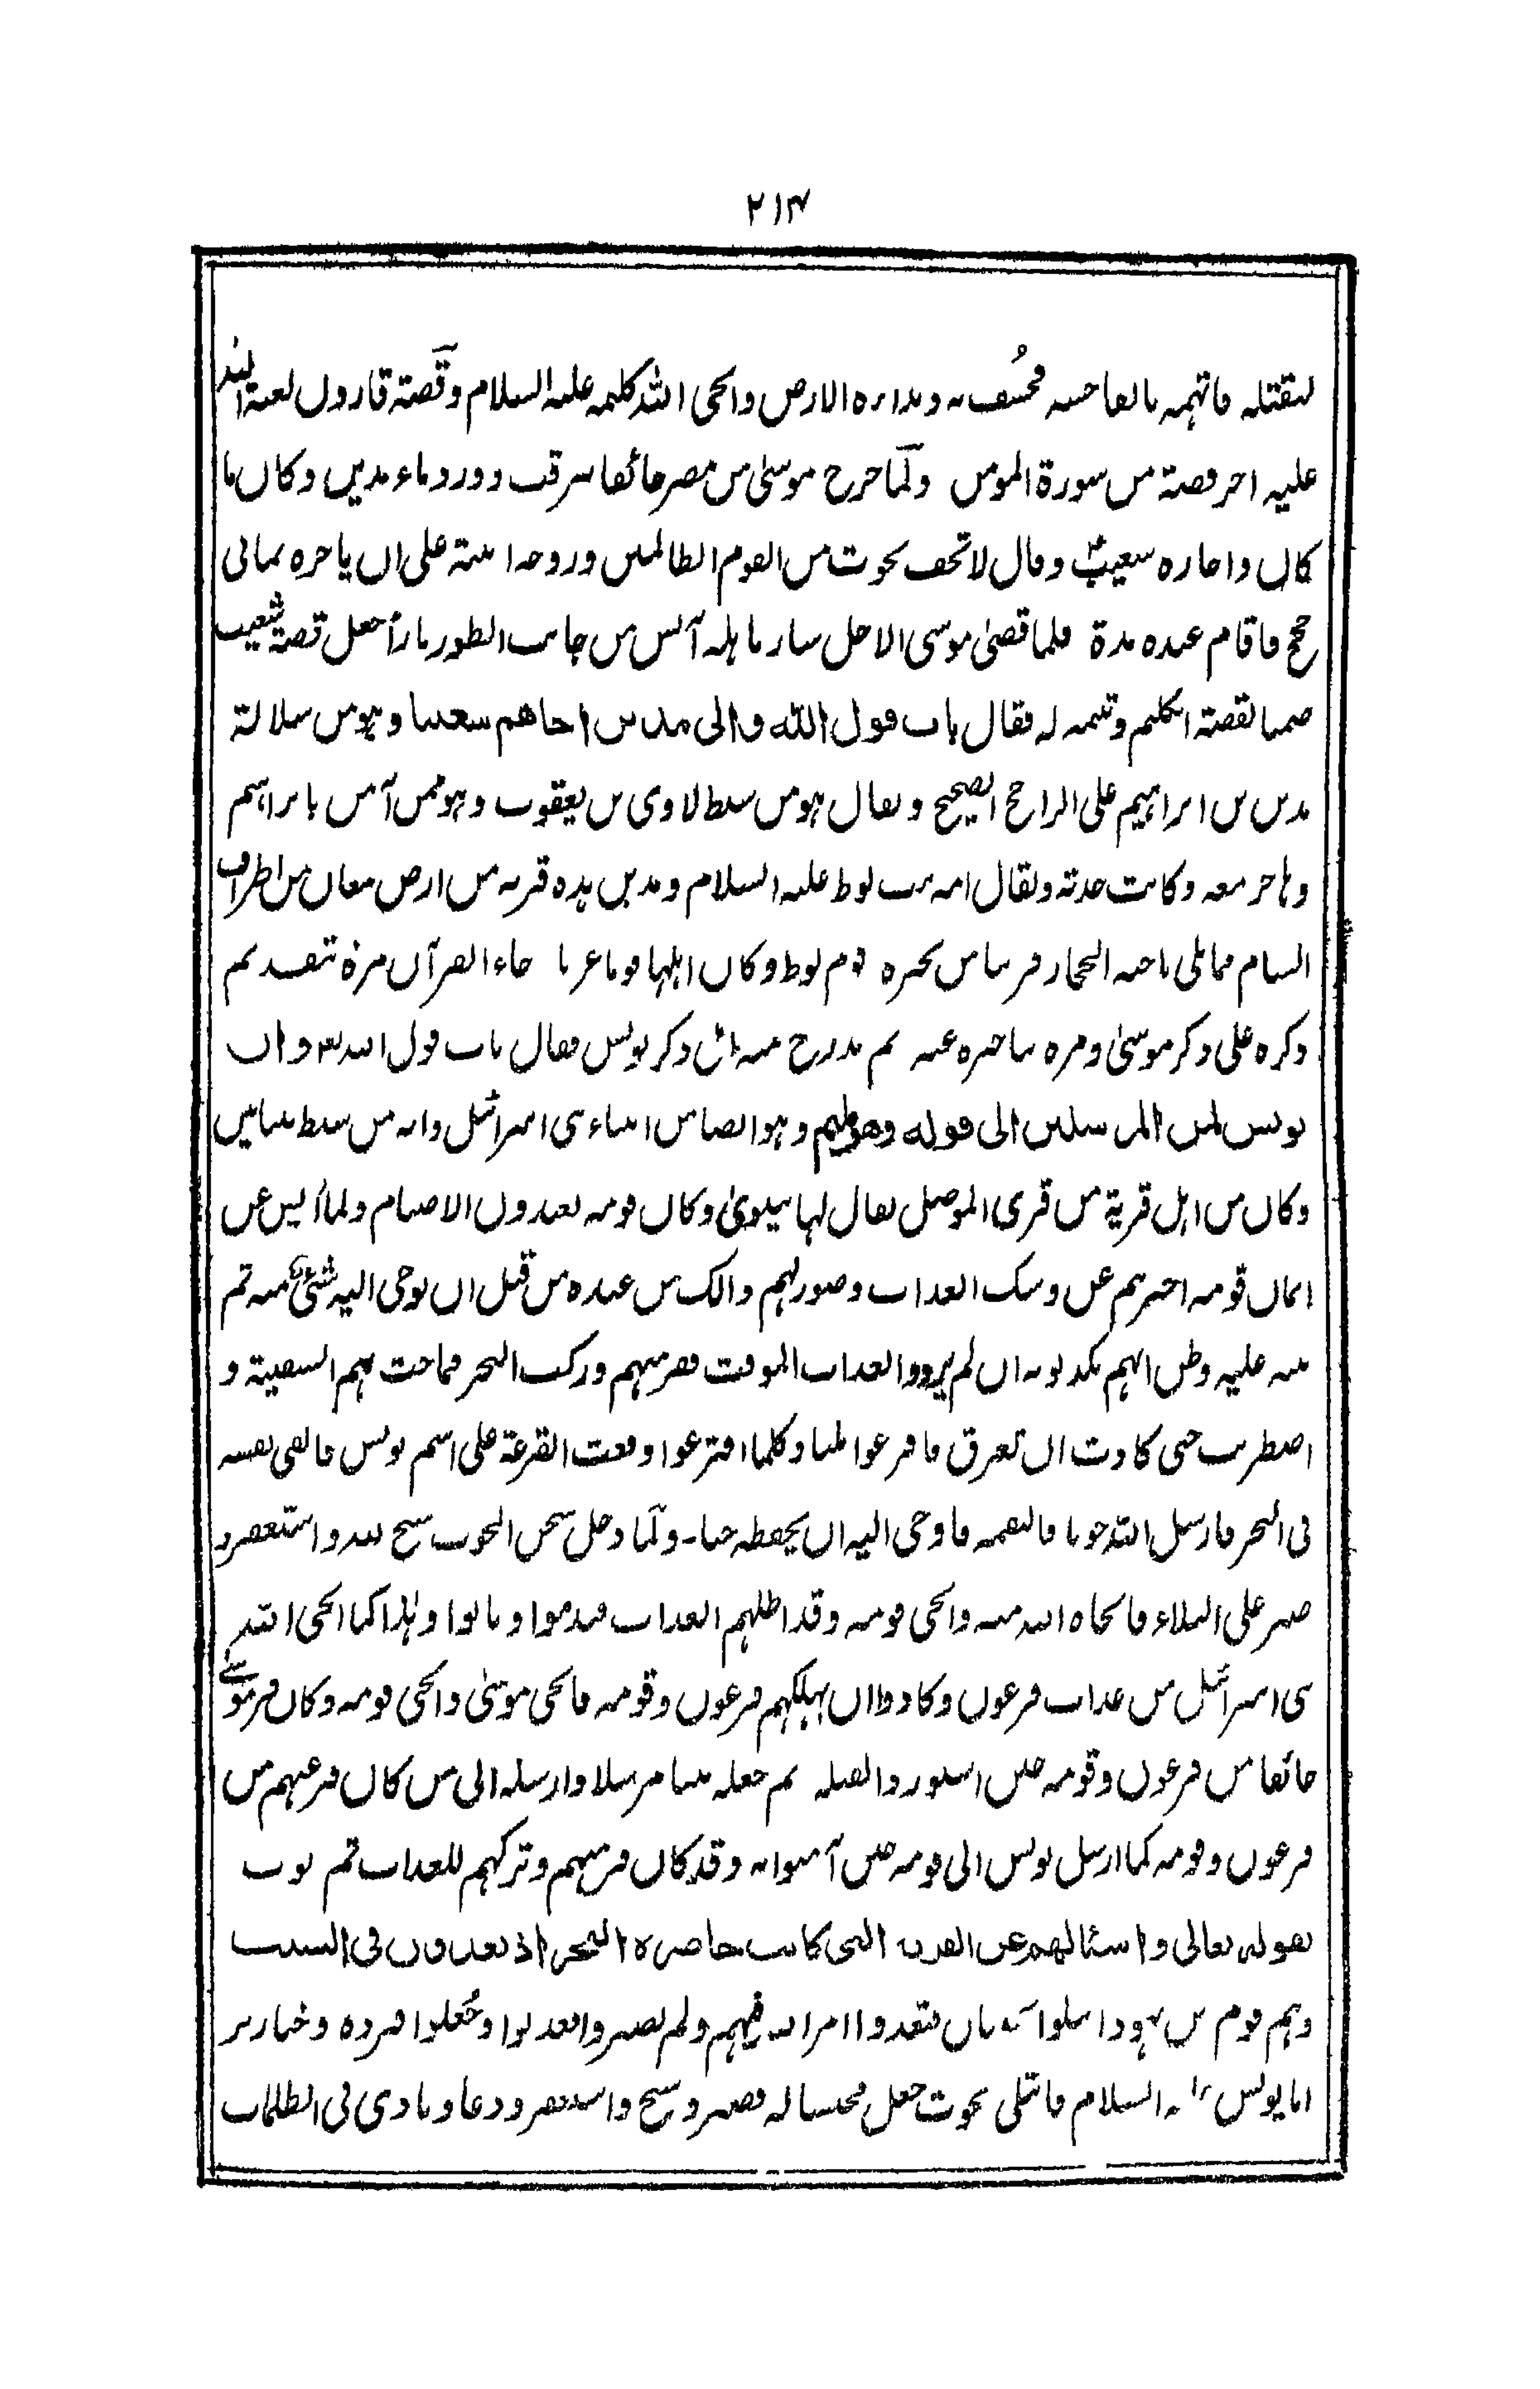 ٢١٣
ليقتله فاتهمه بالفاحشه فخُسف به وبداره الارض وانجى الله كليمه عليه السلام وقصّة قارون لعنة الله
عليه اخر قصته من سورة المومن ولمّا خرج موسىٰ من مصر خائفا يترقب وورد ماء مدين وكان ما
كان واجاره شعيبؑ وقال لا تخف نجوت من القوم الظالمين وزوجه ابنته على ان ياجره ثمانى
حجج فاقام عنده مدة فلما قضىٰ موسى الاجل سار باهله آنس من جانب الطور نارا جعل قصة شعيب
ضميا لقصة الكليم وتتمه له فقال باب قول الله والى مدين اخاهم شعيبا وهو من سلالة
مدين بن ابراهيم على الراجح الصحيح ويقال هو من سبط لاوى بن يعقوب وهو ممن آمن بابراهيم
وهاجر معه وكانت جدته ويقال امه بنت لوط عليه السلام ومدين هذه قريه من ارض معان من اطراف
الشام مما يلى ناحيه الحجاز قريبا من بحيره قوم لوط وكان اهلها قوما عربا جاء القرآن مرة بتقديم
ذكره على ذكر موسىٰ ومره بتاخيره عنه ثم تدرج منه الى ذكر يونس فقال باب قول الله تع وان
يونس لمن المرسلين الى قوله وهو مليم وهو ايضا من انبياء بنى اسرائيل وانه من سبط بنيامين
وكان من اهل قرية من قرى الموصل يقال لها نينوىٰ وكان قومه يعبدون الاصنام ولما أيس عن
ايمان قومه اخبرهم عن وشك العذاب وصورلهم ذالك من عنده من قبل ان يوحى اليه شئ منه ثم
منه عليه وظن انهم يكذبونه ان لم يروا العذاب الموقت ففر منهم وركب البحر فماجت بهم السفينة و
اضطربت حتى كادت ان تغرق فاقرعوا لها وكلما اقترعوا وقعت القرعة على اسم يونس فالقى نفسه
فى البحر فارسل الله حوتا فالتقمه فاوحى اليه ان يحفظه حيا۔ ولمّا دخل سجن الحوت سبح لله واستغفر و
صبر على البلاء فانجاه الله منه وانجى قومه وقد اظلهم العذاب فندموا وتابوا وهٰذا كما انجى الله
بنى اسرائيل من عذاب فرعون وكادوا ان يهلكهم فرعون وقومه فانجى موسىٰ وانجى قومه وكان فر موسےٰ
خائفا من فرعون وقومه حين استوزروا لقتله ثم جعله نبيا مرسلا وارسله الى من كان فر عنهم من
فرعون وقومه كما ارسل يونس الى قومه حين آمنوا به وقد كان فر منهم وتركهم للعذاب ثم بوب
بقوله تعالى واسئالهم عن القريه التى كانت حاضره البحر اذ يعدون فى السبت
وهم قوم من يهود ابتلوا بان فتعدوا امر الله فيهم ولم يصبروا فعذبوا وجُعلوا قرده وخنازير
اما يونس عليه السلام فابتلى بحوت جعل محبسا له فصبر وسبح واستغفر ودعا ونادى فى الظلمات